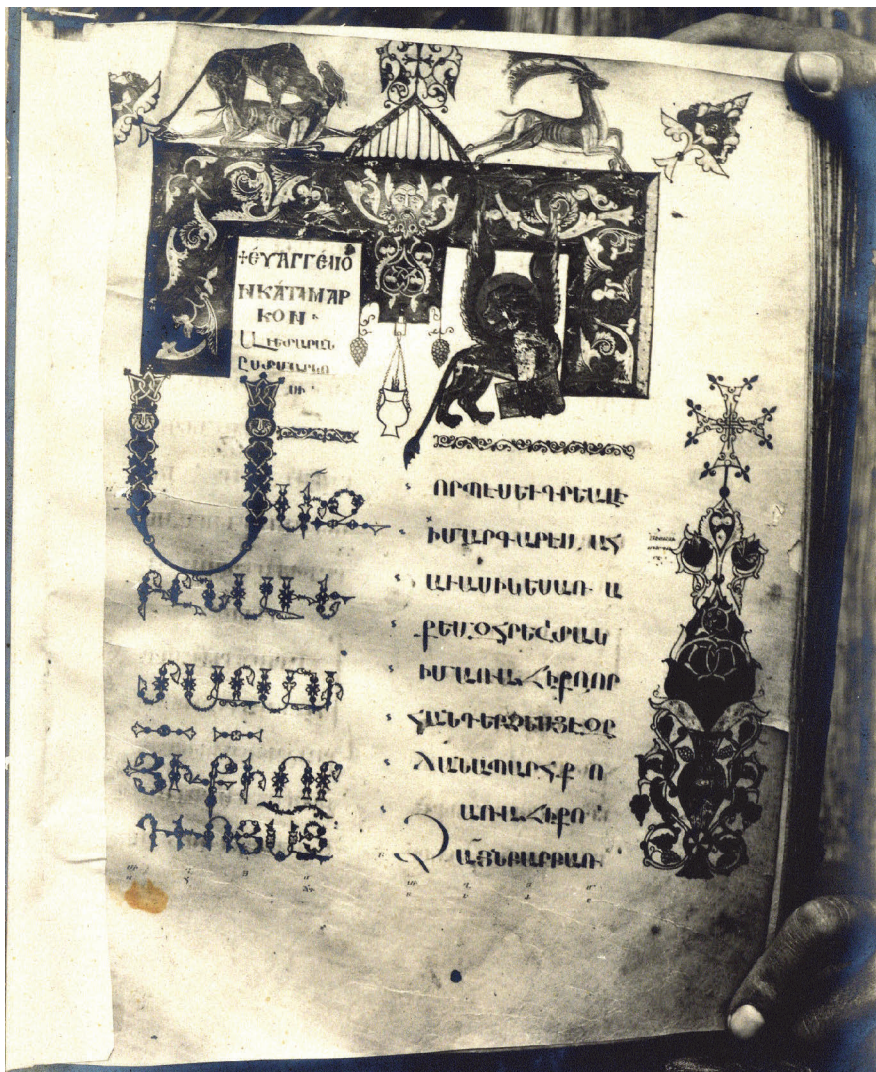 +ΕΥΑΓΓΕΛΙΟ
Ν ΚΑΤΑ ΜΑΡ
ΚΟΝ
ԱՒԵՏԱՐԱՆ
ԸՍՏ ՄԱՐԿՈ
ՍԻ
ՍԿԻԶ
ԲՆ ԱՒԵ
ՏԱՐԱՆԻ
ՅԻ ՔԻ ՈՐ
ԴՒՈՅ ԱՅ
ՈՐՊԷՍ ԵՒ ԳՐԵԱԼ Է
Ի ՄԱՐԳԱՐԷՍ. ԱՀ
ԱՒԱՍԻԿ ԵՍ ԱՌԱ
ՔԵՄ ԶՀՐԵՇՏԱԿ
ԻՄ ԱՌԱՋԻ ՔՈ ՈՐ
ՀԱՆԴԵՐՁԵՍՑԷ Զ
ՃԱՆԱՊԱՐՀ ՔՈ
ԱՌԱՋԻ ՔՈ
ՁԱՅՆ ԲԱՐԲԱՌ